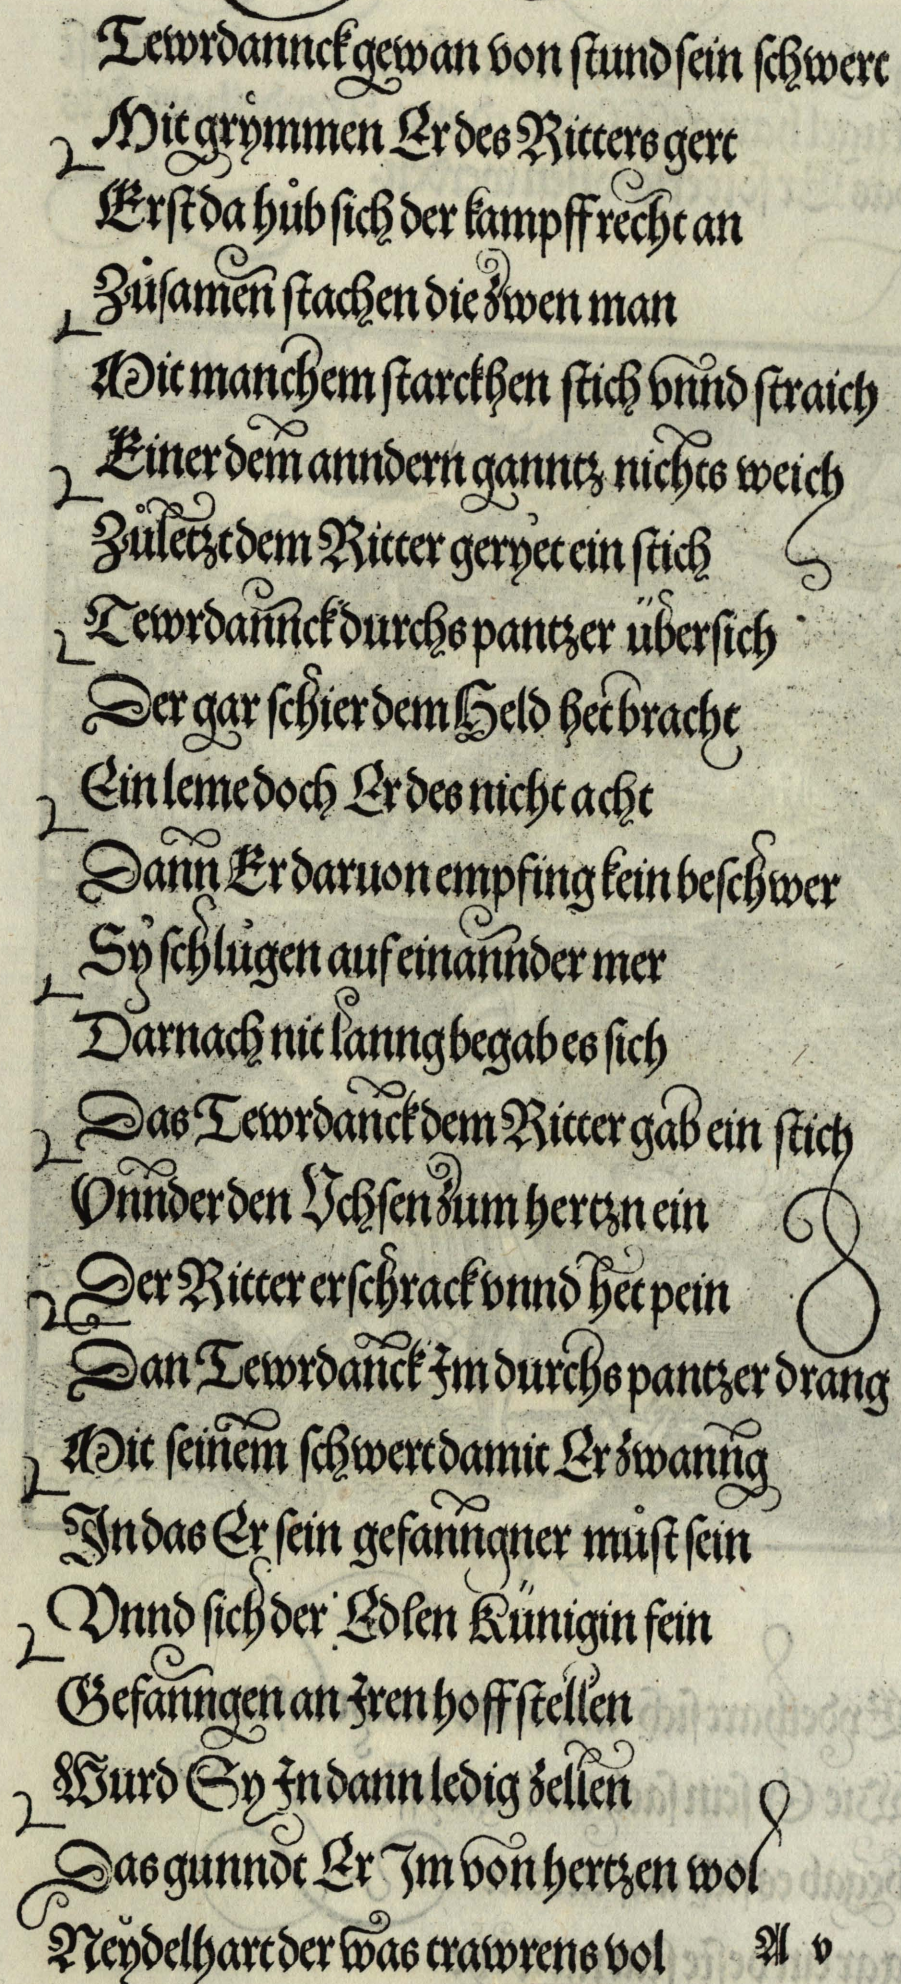 Tewrdannck gewan von stund sein schwert
Mit grymmen Er des Ritters gert
Erst da hůb sich der kampff recht an
Zůsamen stachen die zwen man
Mit manchem starckhen stich vnnd straich
Einer dem anndern ganntz nichts weich
Zůletzt dem Ritter geryet ein stich
Tewrdannck durchs pantzer übersich
Der gar schier dem Held het bracht
Ein leme doch Er des nicht acht
Dann Er daruon empfing kein beschwer
Sy schlůgen auf einannder mer
Darnach nit lanng begab es sich
Das Tewrdanck dem Ritter gab ein stich
Vnnder den Vchsen zum hertzn ein
Der Ritter erschrack vnnd het pein
Dan Tewrdanck Im durchs pantzer drang
Mit seinem schwert damit Er zwanng
In das Er sein gefanngner můst sein
Vnnd sich der Edlen Künigin fein
Gefanngen an Iren hoff stellen
Wurd Sy In dann ledig zellen
Das gunndt Er Im von hertzen wol
Neydelhart der was trawrens vol A v